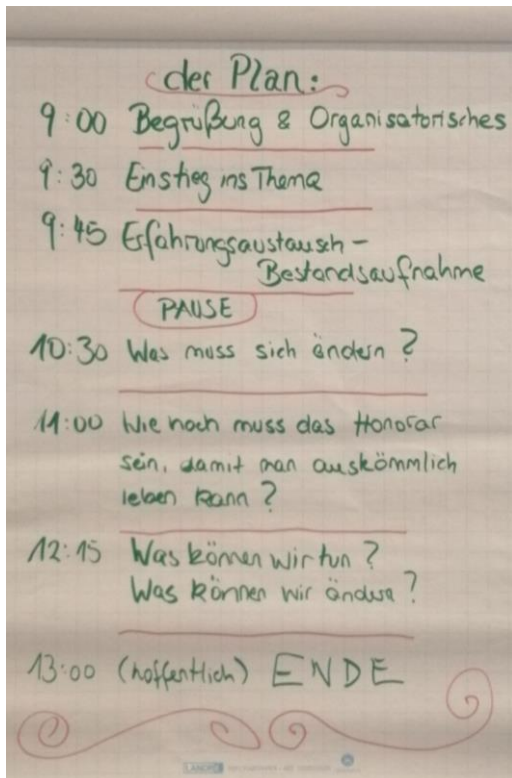 der Plan:
9:00 Begrüßung & Organisatorisches
9:30 Einstieg ins Thema
9:45 Erfahrungsaustausch -
Bestandsaufnahme
PAUSE
10:30 Was muss sich ändern?
11:00 Wie hoch muss das Honorar
sein, damit man auskömmlich
leben kann?
12:15 Was können wir tun?
Was können wir ändern?
13:00 (hoffentlich) ENDE
LANDRÉ